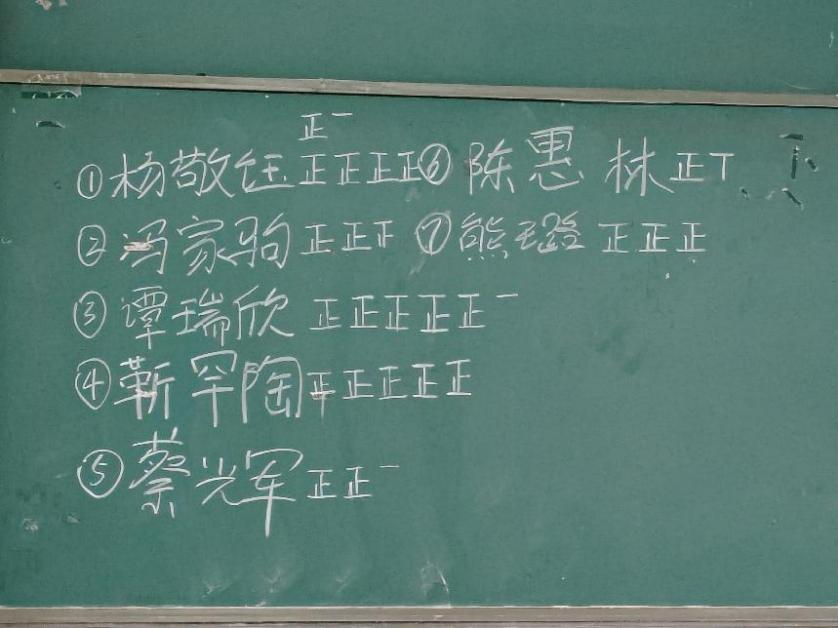 正一
①杨敬钰正正正正⑥陈惠林正丅
②冯家驹正正正⑦熊璐正正正
③谭瑞欣正正正正正一
④靳罕陶正正正正正
⑤蔡光军正正一